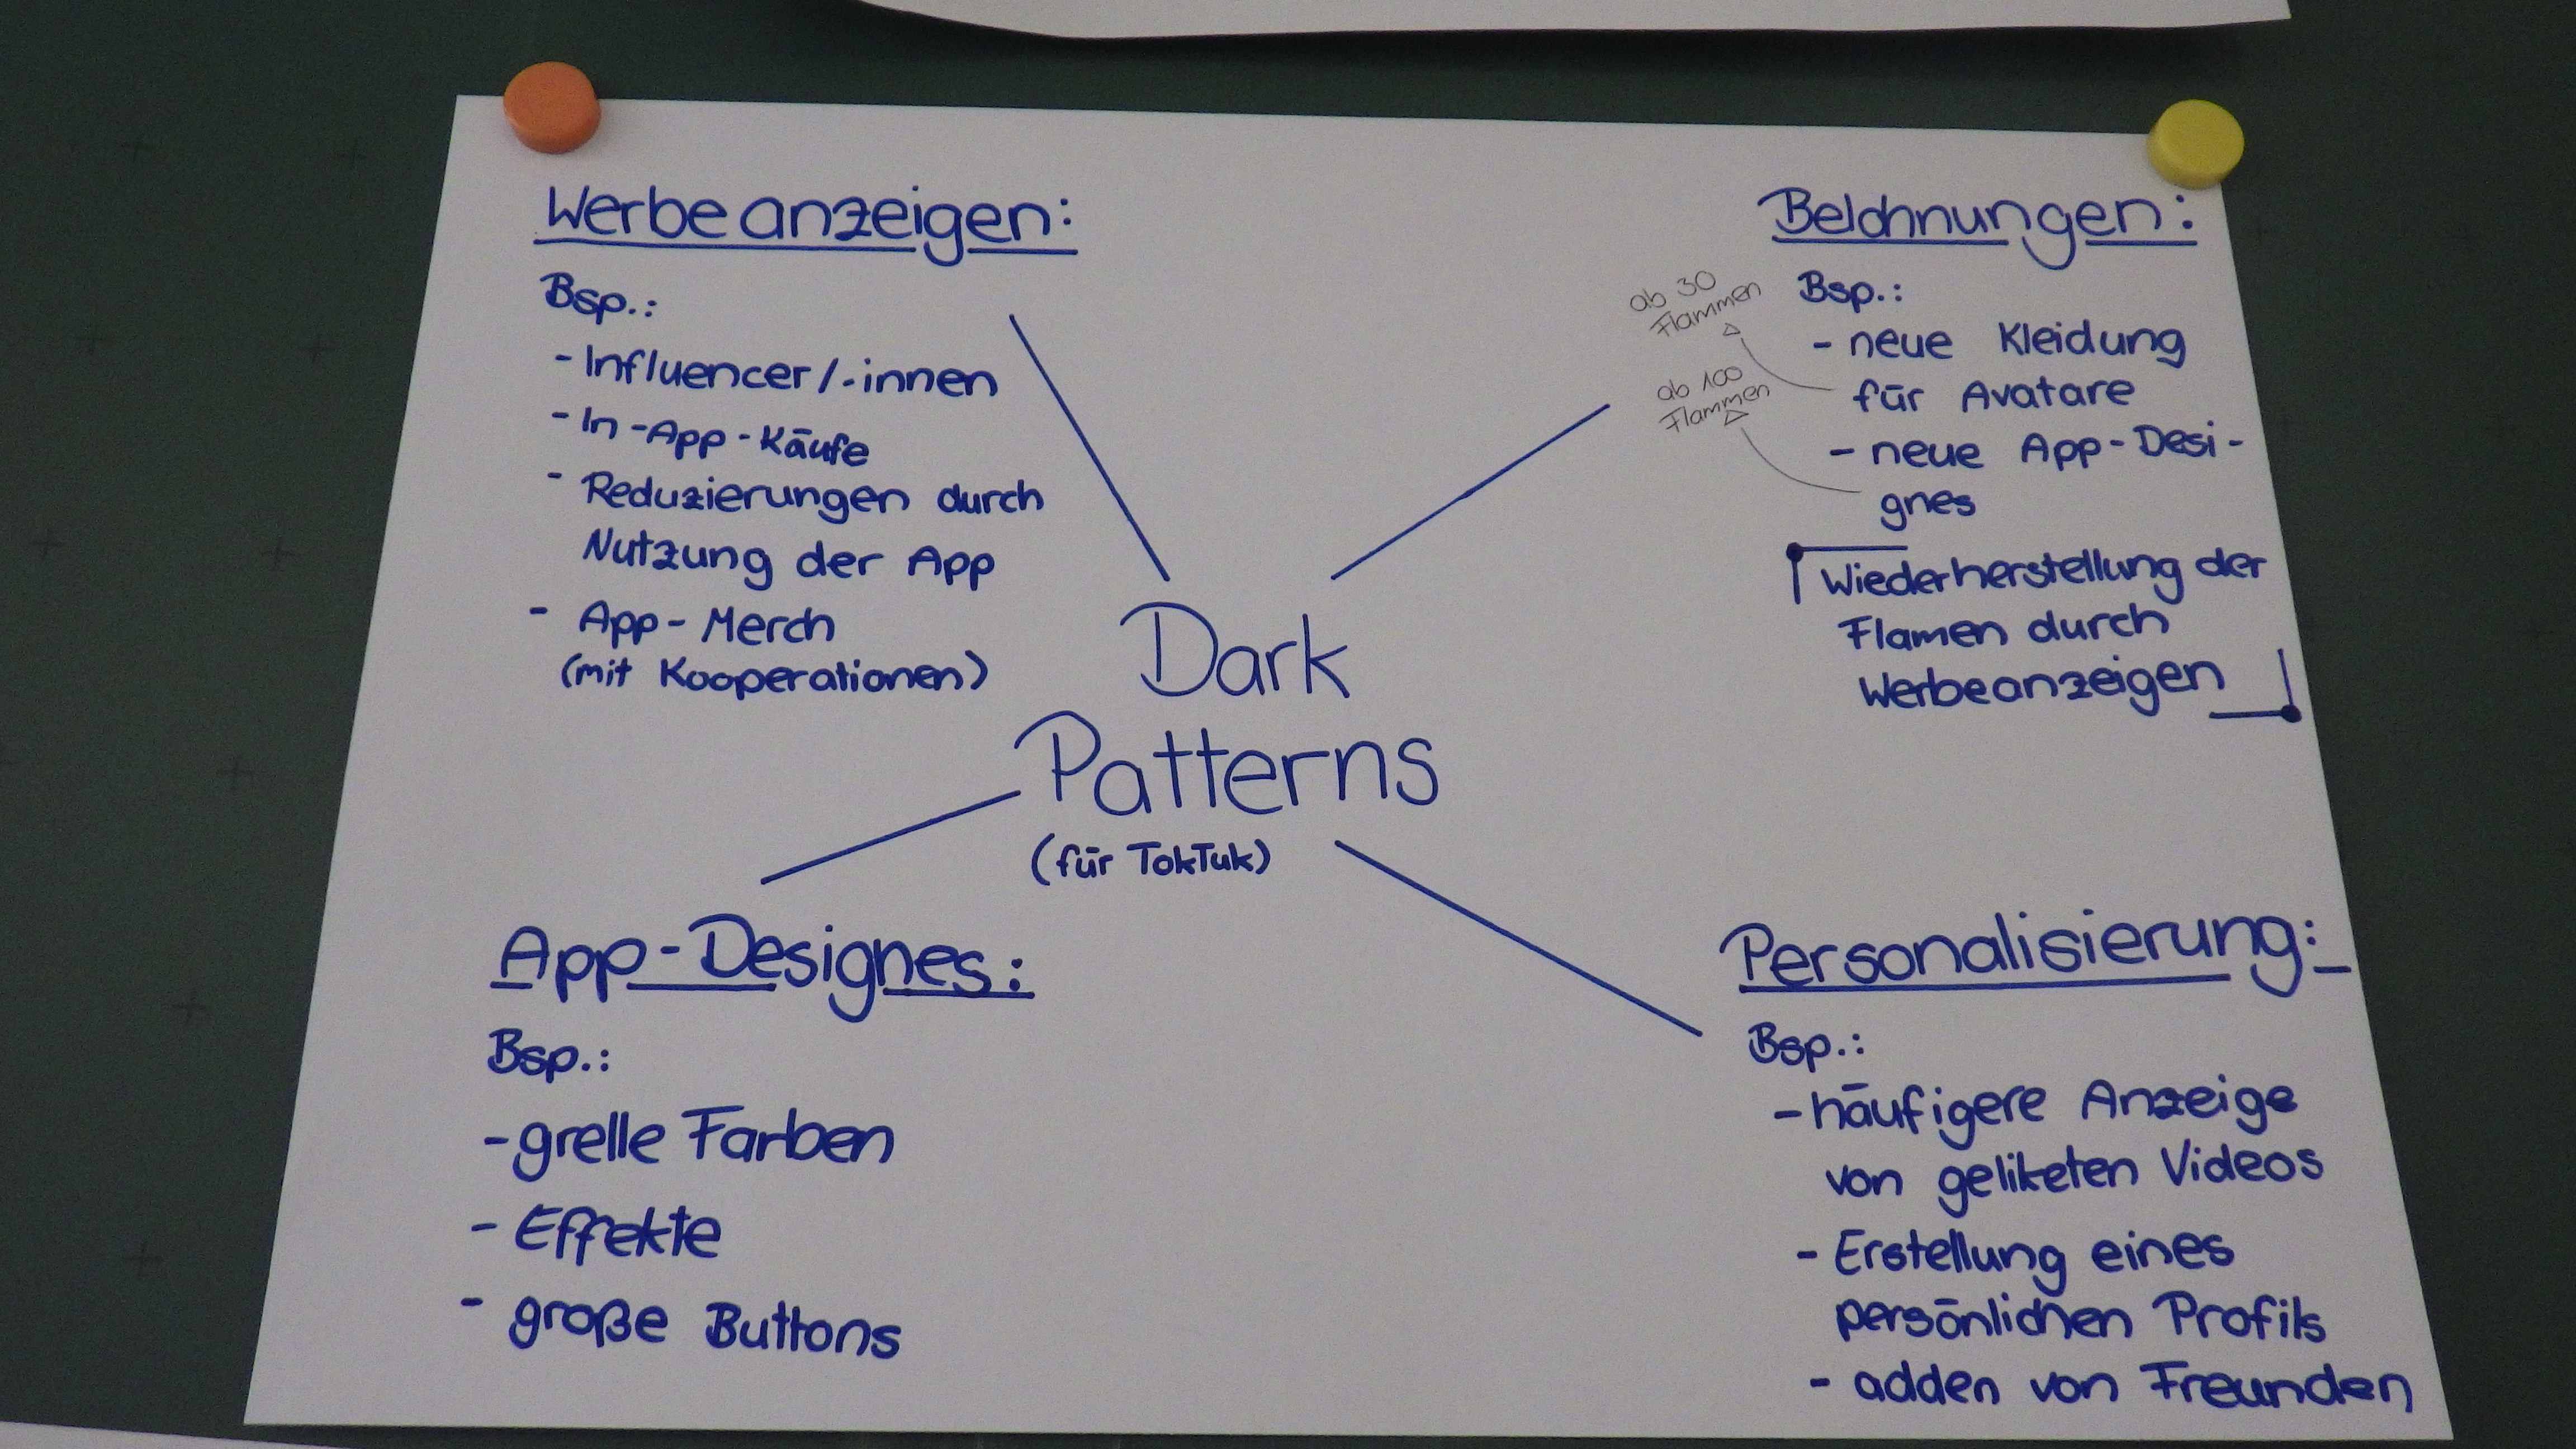 Werbeanzeigen:
Bsp.:
- Influencer/-innen
- In-App-Käufe
- Reduzierungen durch
Nutzung der App
- App-Merch
(mit Kooperationen)
Belohnungen:
Bsp.:
- neue Kleidung
für Avatare
- neue App-Desi-
gnes
ab 30
Flammen
ab 100
Flammen
Wiederherstellung der
Flamen durch
Werbeanzeigen
Dark
Patterns
(für TokTuk)
App-Designes:
Bsp.:
- grelle Farben
- Effekte
- große Buttons
Personalisierung:
Bsp.:
- häufigere Anzeige
von geliketen Videos
- Erstellung eines
persönlichen Profils
- adden von Freunden